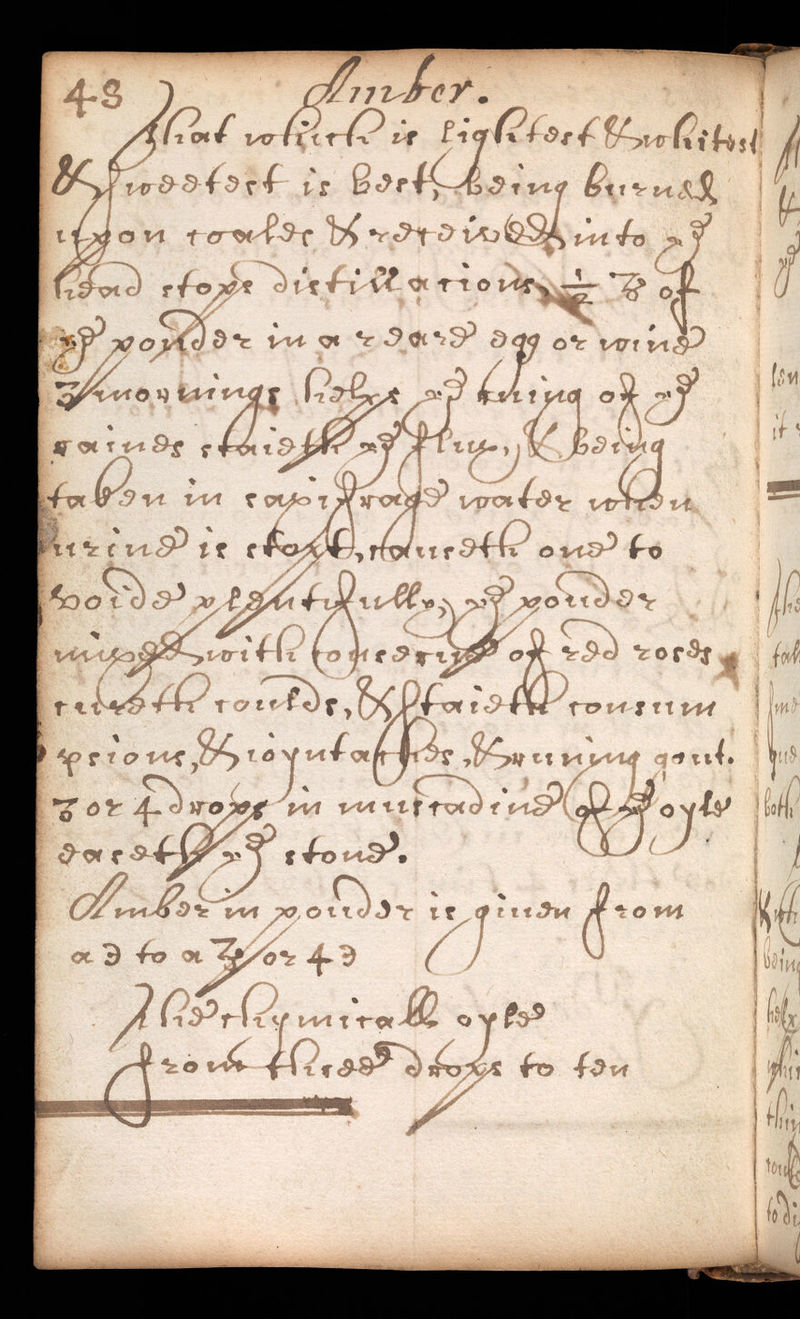 48 Amber.
That which is lightest & whitest
& sweetest is best, being burned
upon coales & received into ye
head stops distillacions, ½ ʒ of
ye pouder in a reare egg or wine
3 mornings helps ye runing of ye
raines staieth ye flux, & being
taken in saxifrage water when
urine is stopt, causeth one to
voide plentifully, ye pouder
mixed with conserve of red roses
cureth coulds, & staieth consum
psions, & ioynt aches, & runing gout.
3 or 4 drops in muscadine of ye oyle
easeth ye stone.
Amber in pouder is giuen from
a ℈ to a ʒ or 4 ℈
The chymicall oyle
from three drops to ten